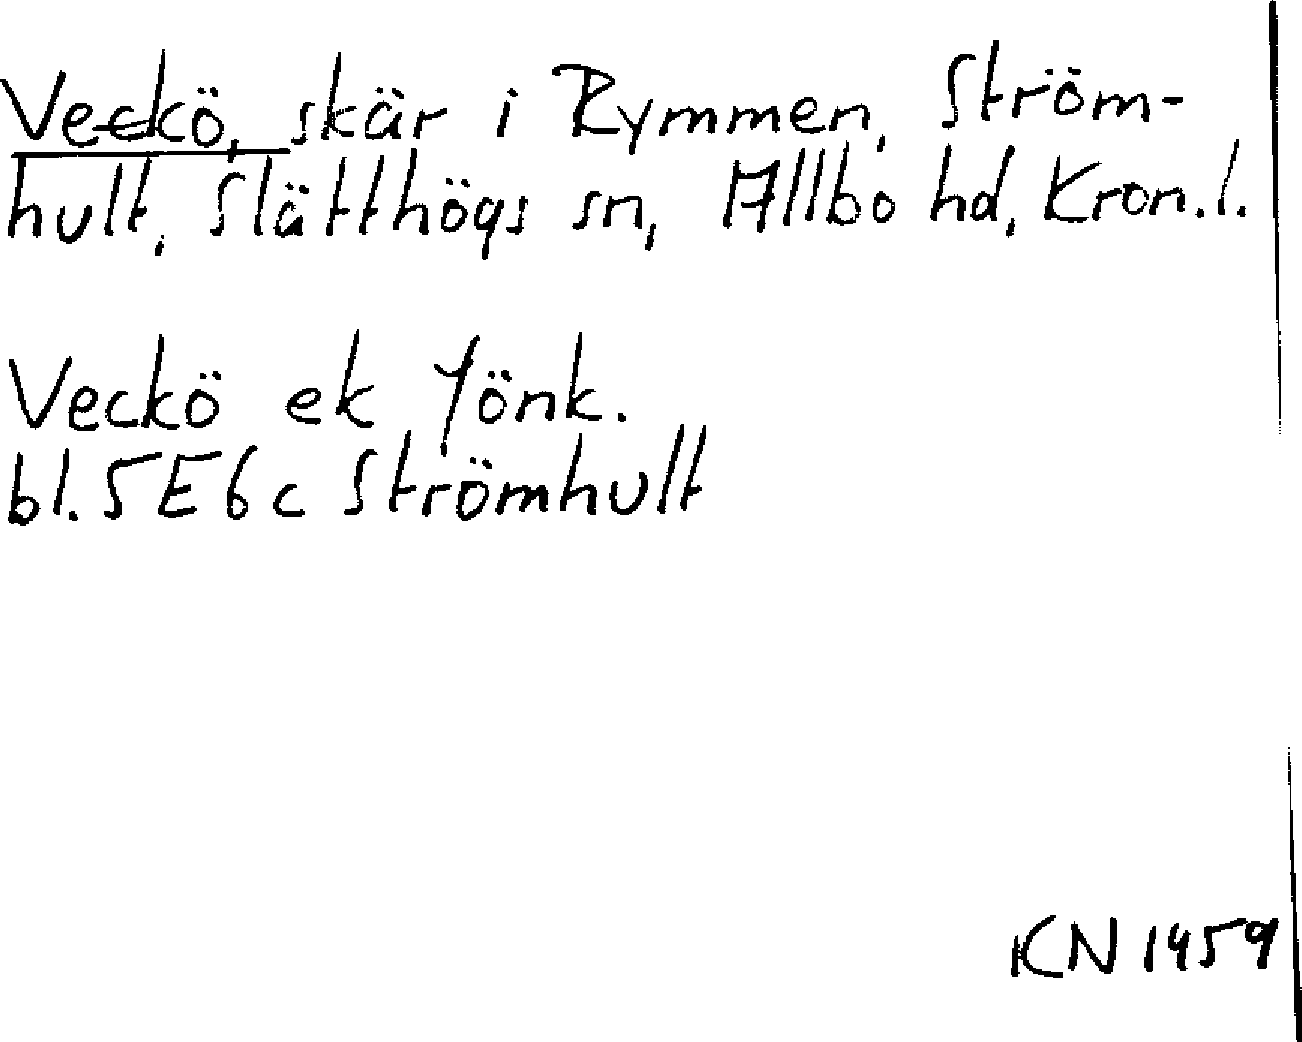 Veckö, skär i Rymmen, Ström-
hult, Slätthögs sn, Allbo hd, Kron.l.
Veckö ek Jönk.
bl. 5E6c Strömhult
KN 1459